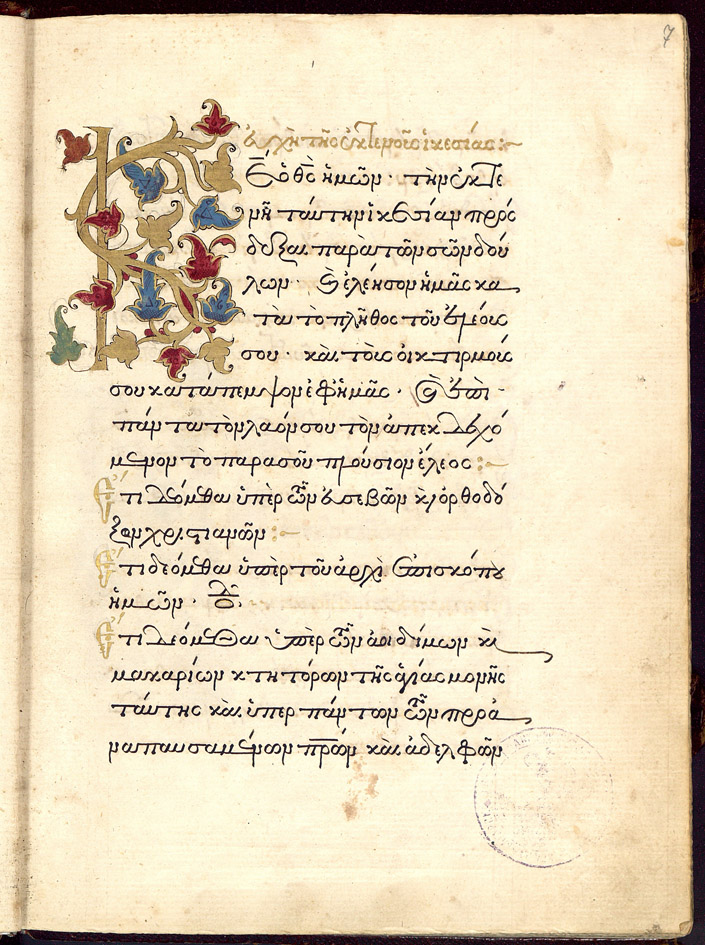 7
ἀρχὴ τῆς ἐκτενοῦς ἱκεσίας :~
Κ̅Ε̅ ὁ θ̅ς̅ ἡμῶν · τὴν ἐκτε
νῆ ταύτην ἱκεσίαν πρόσ
δεξαι παρὰ τῶν σῶν δού
λων · καὶ ἐλέησον ἡμᾶς κα
τὰ τὸ πλῆθος τοῦ ἐλέους
σου · καὶ τοὺς οἰκτιρμούς
σου κατάπεμψον ἐφ ἡμᾶς · καὶ ἐπὶ
πάντα τὸν λαόν σου τὸν ἀπεκδεχό
μενον τὸ παρὰ σοῦ πλούσιον ἔλεος :~
Ἔτι δεόμεθα ὑπὲρ τῶν εὐσεβῶν κ̀ ὀρθοδό
ξων χριστιανῶν :~
Ἔτι δεόμεθα ὑπὲρ τοῦ ἀρχιεπισκόπου
ἡμῶν · δ̅
Ἔτι δεόμεθα ὑπὲρ τῶν ἀοιδίμων κ̀
μακαρίων κτητόρων τῆς ἁγίας μονῆς
ταύτης καὶ ὑπὲρ πάντων τῶν προα
ναπαυσαμένων π̅ρ̅ων καὶ ἀδελφῶν